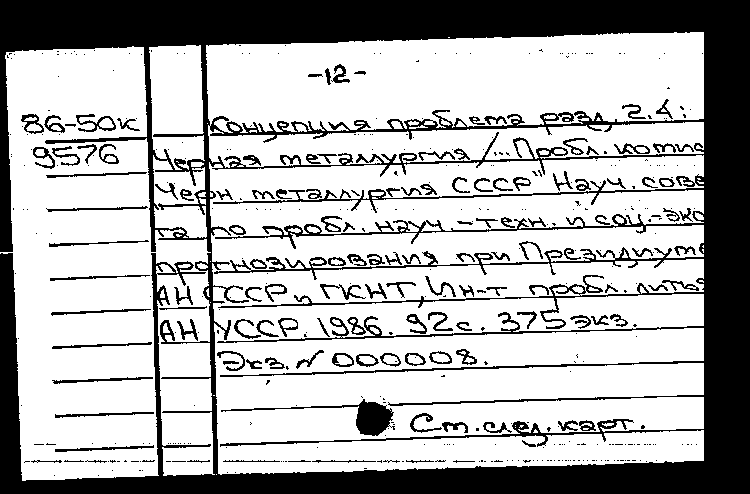 -12-
86-50к Концепция проблема разд. 2.4:
9576 Черная металлургия /... Пробл. комис
"Черн. металлургия СССР" Науч. сове
та по пробл. науч.-техн. и соц.-эко
прогнозирования при Президиуме
АН СССР и ГКНТ, Ин-т пробл. литья
АН УССР. 1986. 92 с. 375 экз.
Экз. № 000008.
Ст. след. карт.